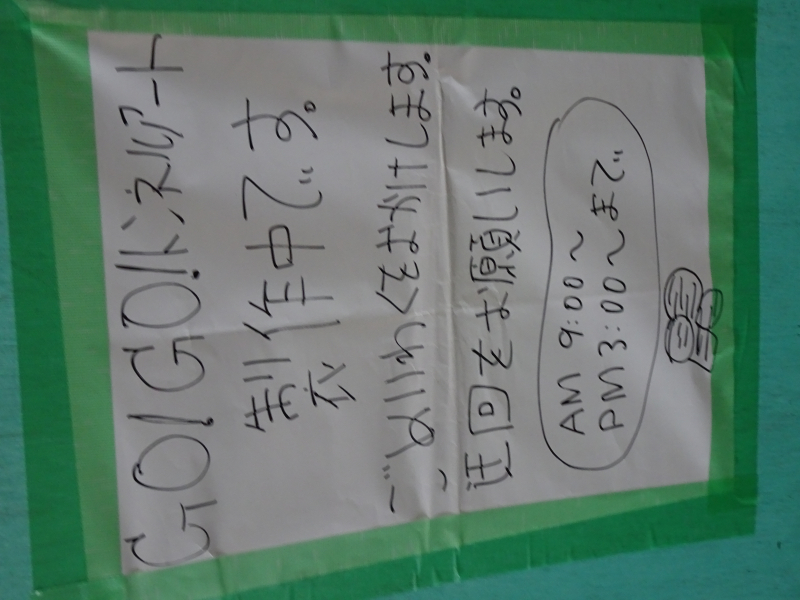 GO!GO!トンネルアート
製作中です。
ごめいわくをおかけします。
迂回をお願いします。
AM 9:00〜
PM 3:00〜まで